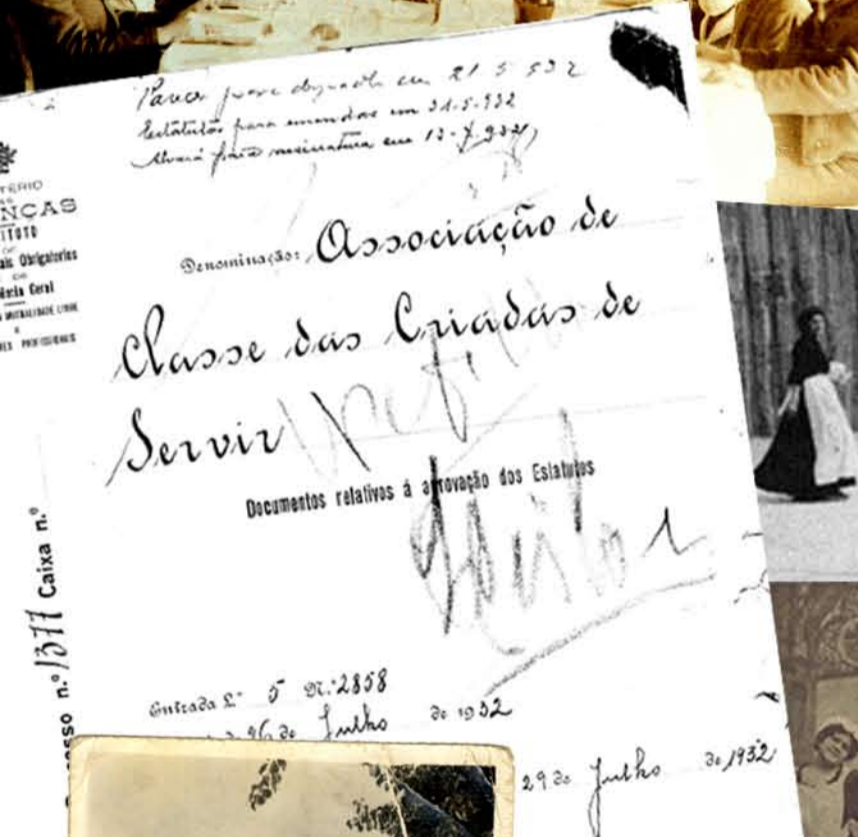 para em 21.5.932
Estatutos para emendar em 31-5-932
Alvará para assinatura em 13-7-932
TÉRIO
AS
NÇAS
ITUTO
DE
ais Obrigatorios
DE
dência Geral
MUTUALIDADE LIVRE
E
PROFISSIONAIS
Denominação: Associação de
Classe das Criadas de
Servir
Documentos relativos á aprovação dos Estatutos
Caixa n.º
esso n.º 1377
Entrada L.º 5 N.º 2858
26 de Julho de 1932
29 de Julho de 1932